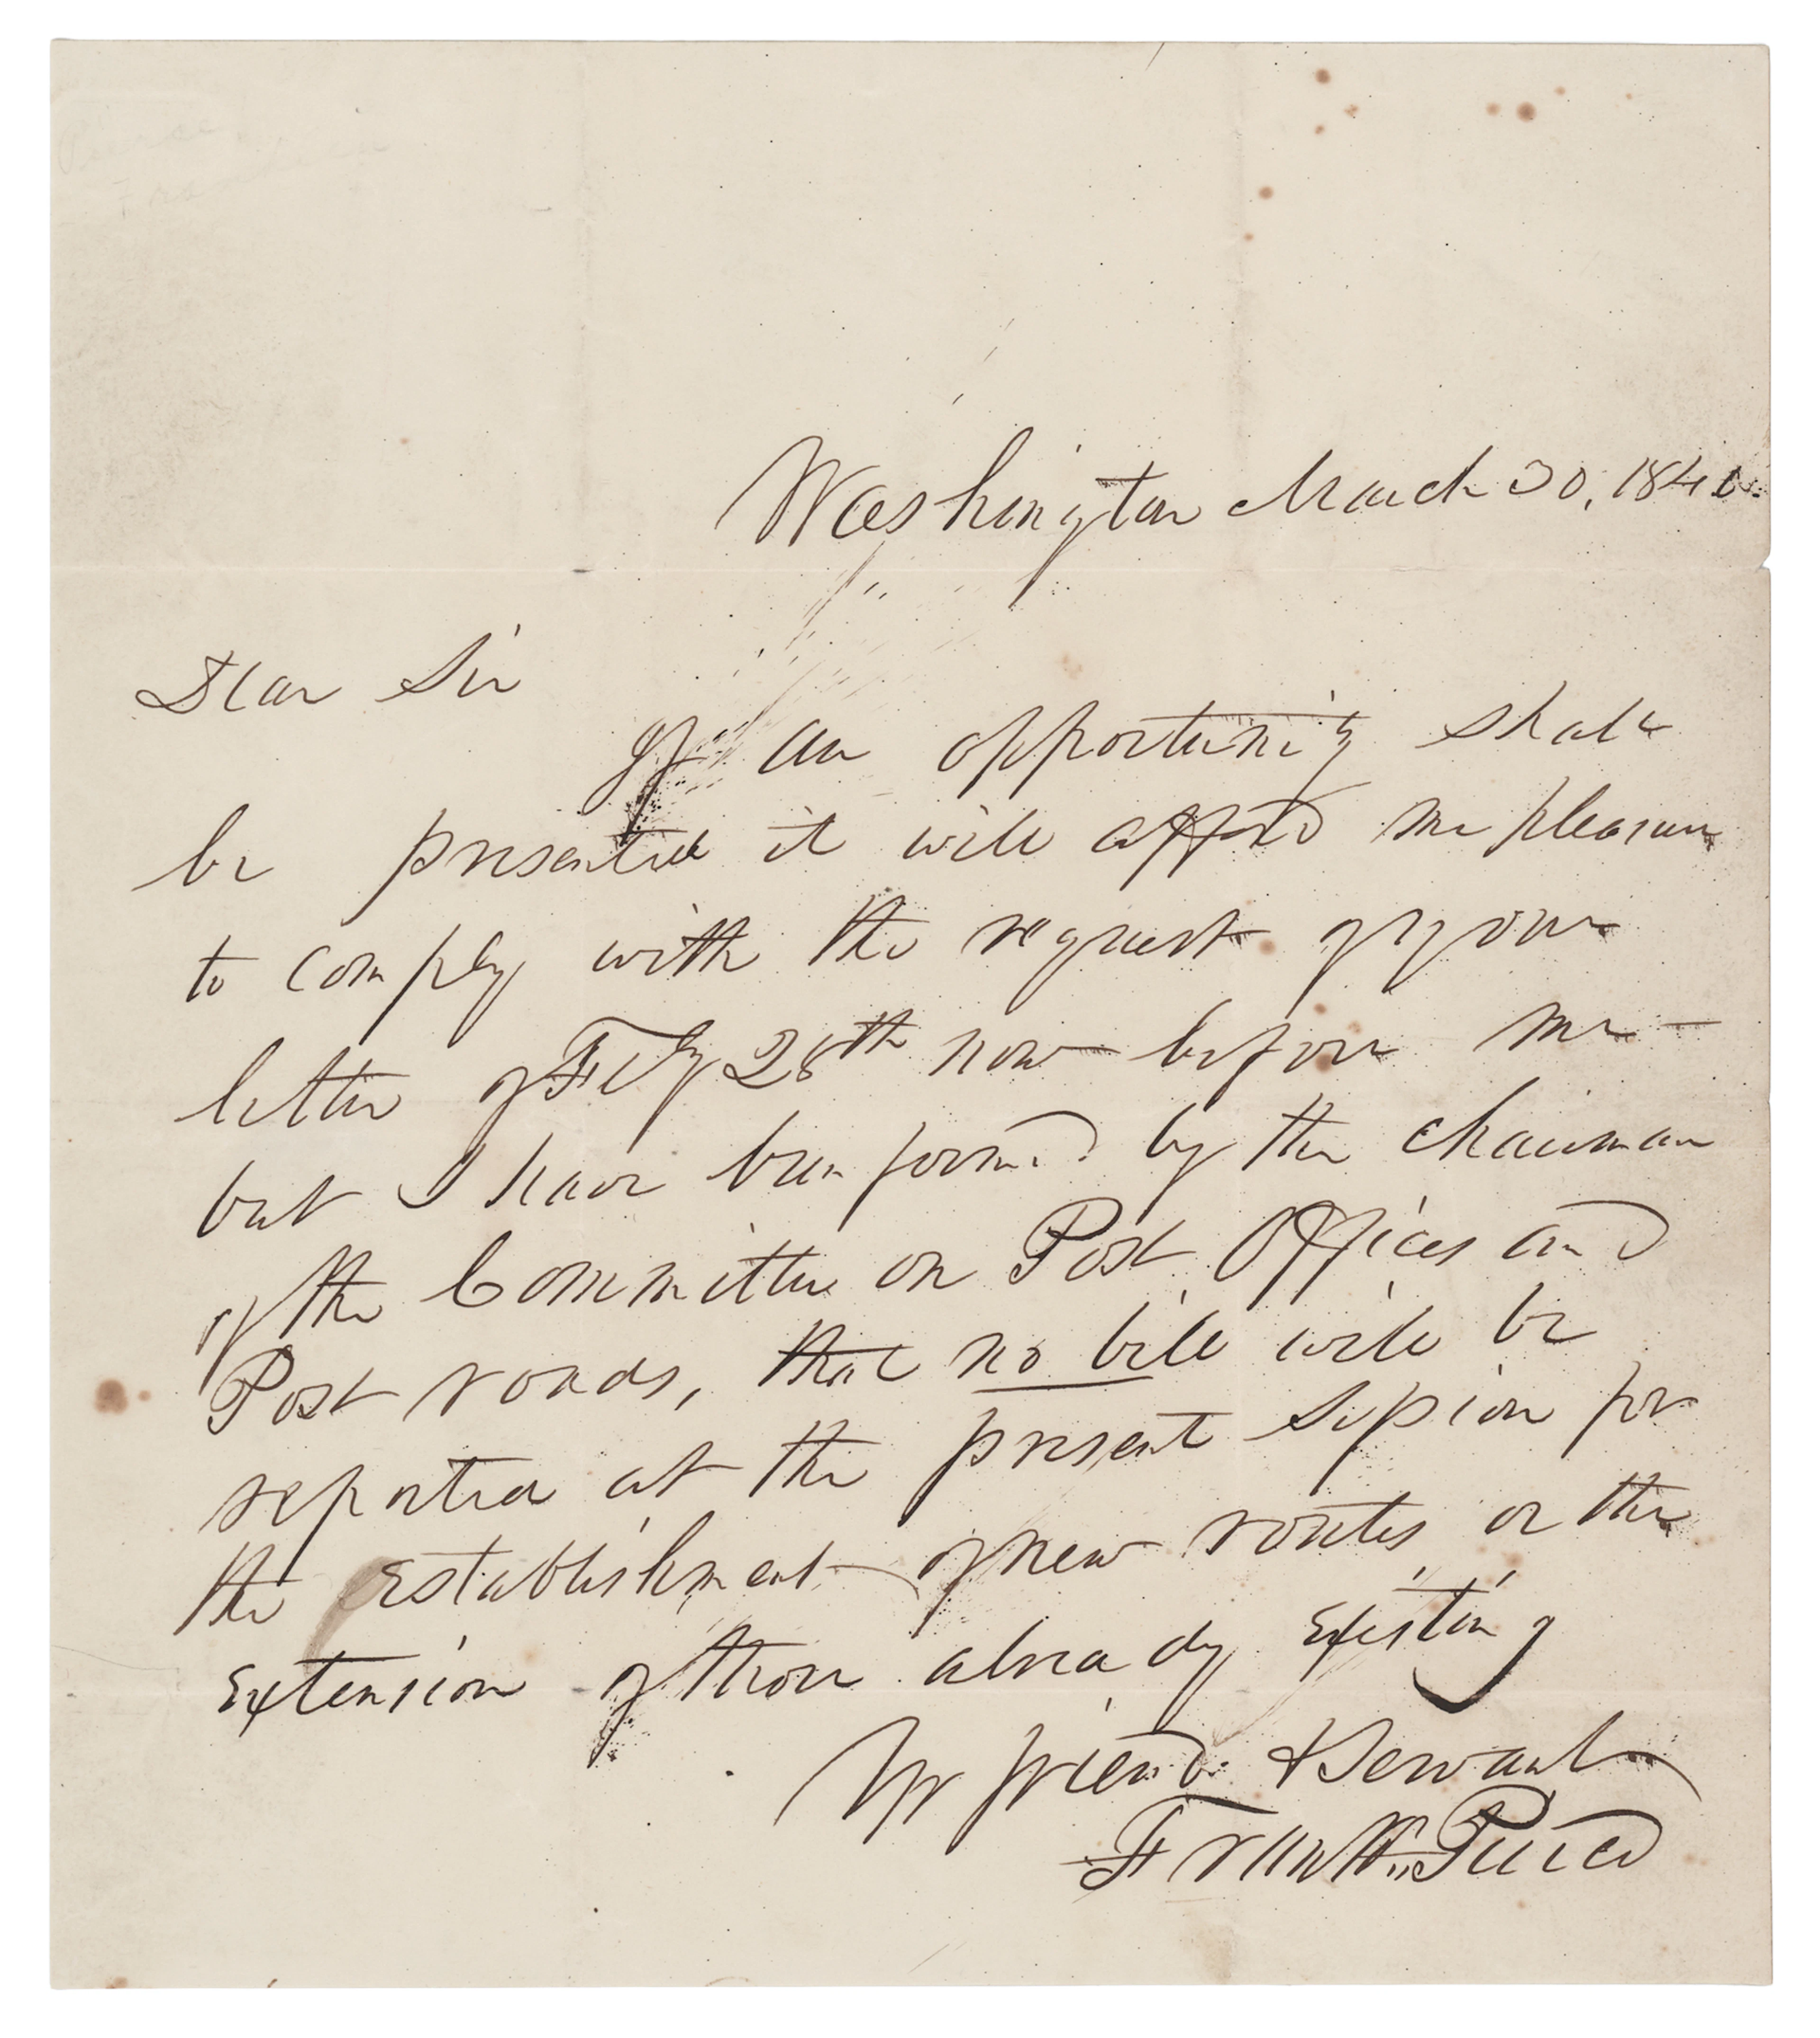 Washington March 30, 1840.
Dear Sir
If an opportunity shall
be presented it will afford me pleasure
to comply with the request of your
letter of Feby 28th now before me –
but I have been formed by the chairman
of the Committee on Post Offices and
Post roads, that no bill will be
reported at the present session for
the establishment of new routes or the
extension of those already existing
Yr friend & Servant
Frankn. Pierce